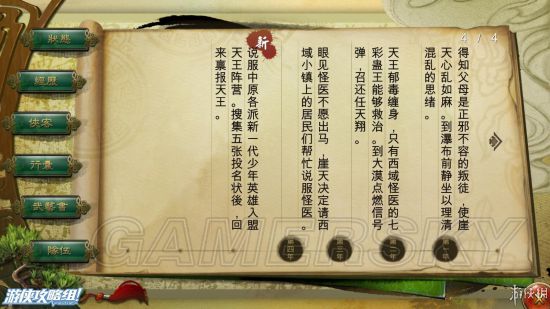 狀態
經歷
俠客
行囊
武藝會
隊伍
4 / 4
得知父母是正邪不容的叛徒，使崖
天心乱如麻。到瀑布前静坐以理清
混乱的思绪。
天王郁毒缠身，只有西域怪医的七
彩蛊王能够救治。到大漠点燃信号
弹，召还任天翔。
眼见怪医不愿出马，崖天决定请西
域小镇上的居民们帮忙说服怪医。
新
说服中原各派新一代少年英雄入盟
天王阵营。搜集五张投名状後，回
来禀报天王。
第四年
GAMERSKY
游侠攻略组!